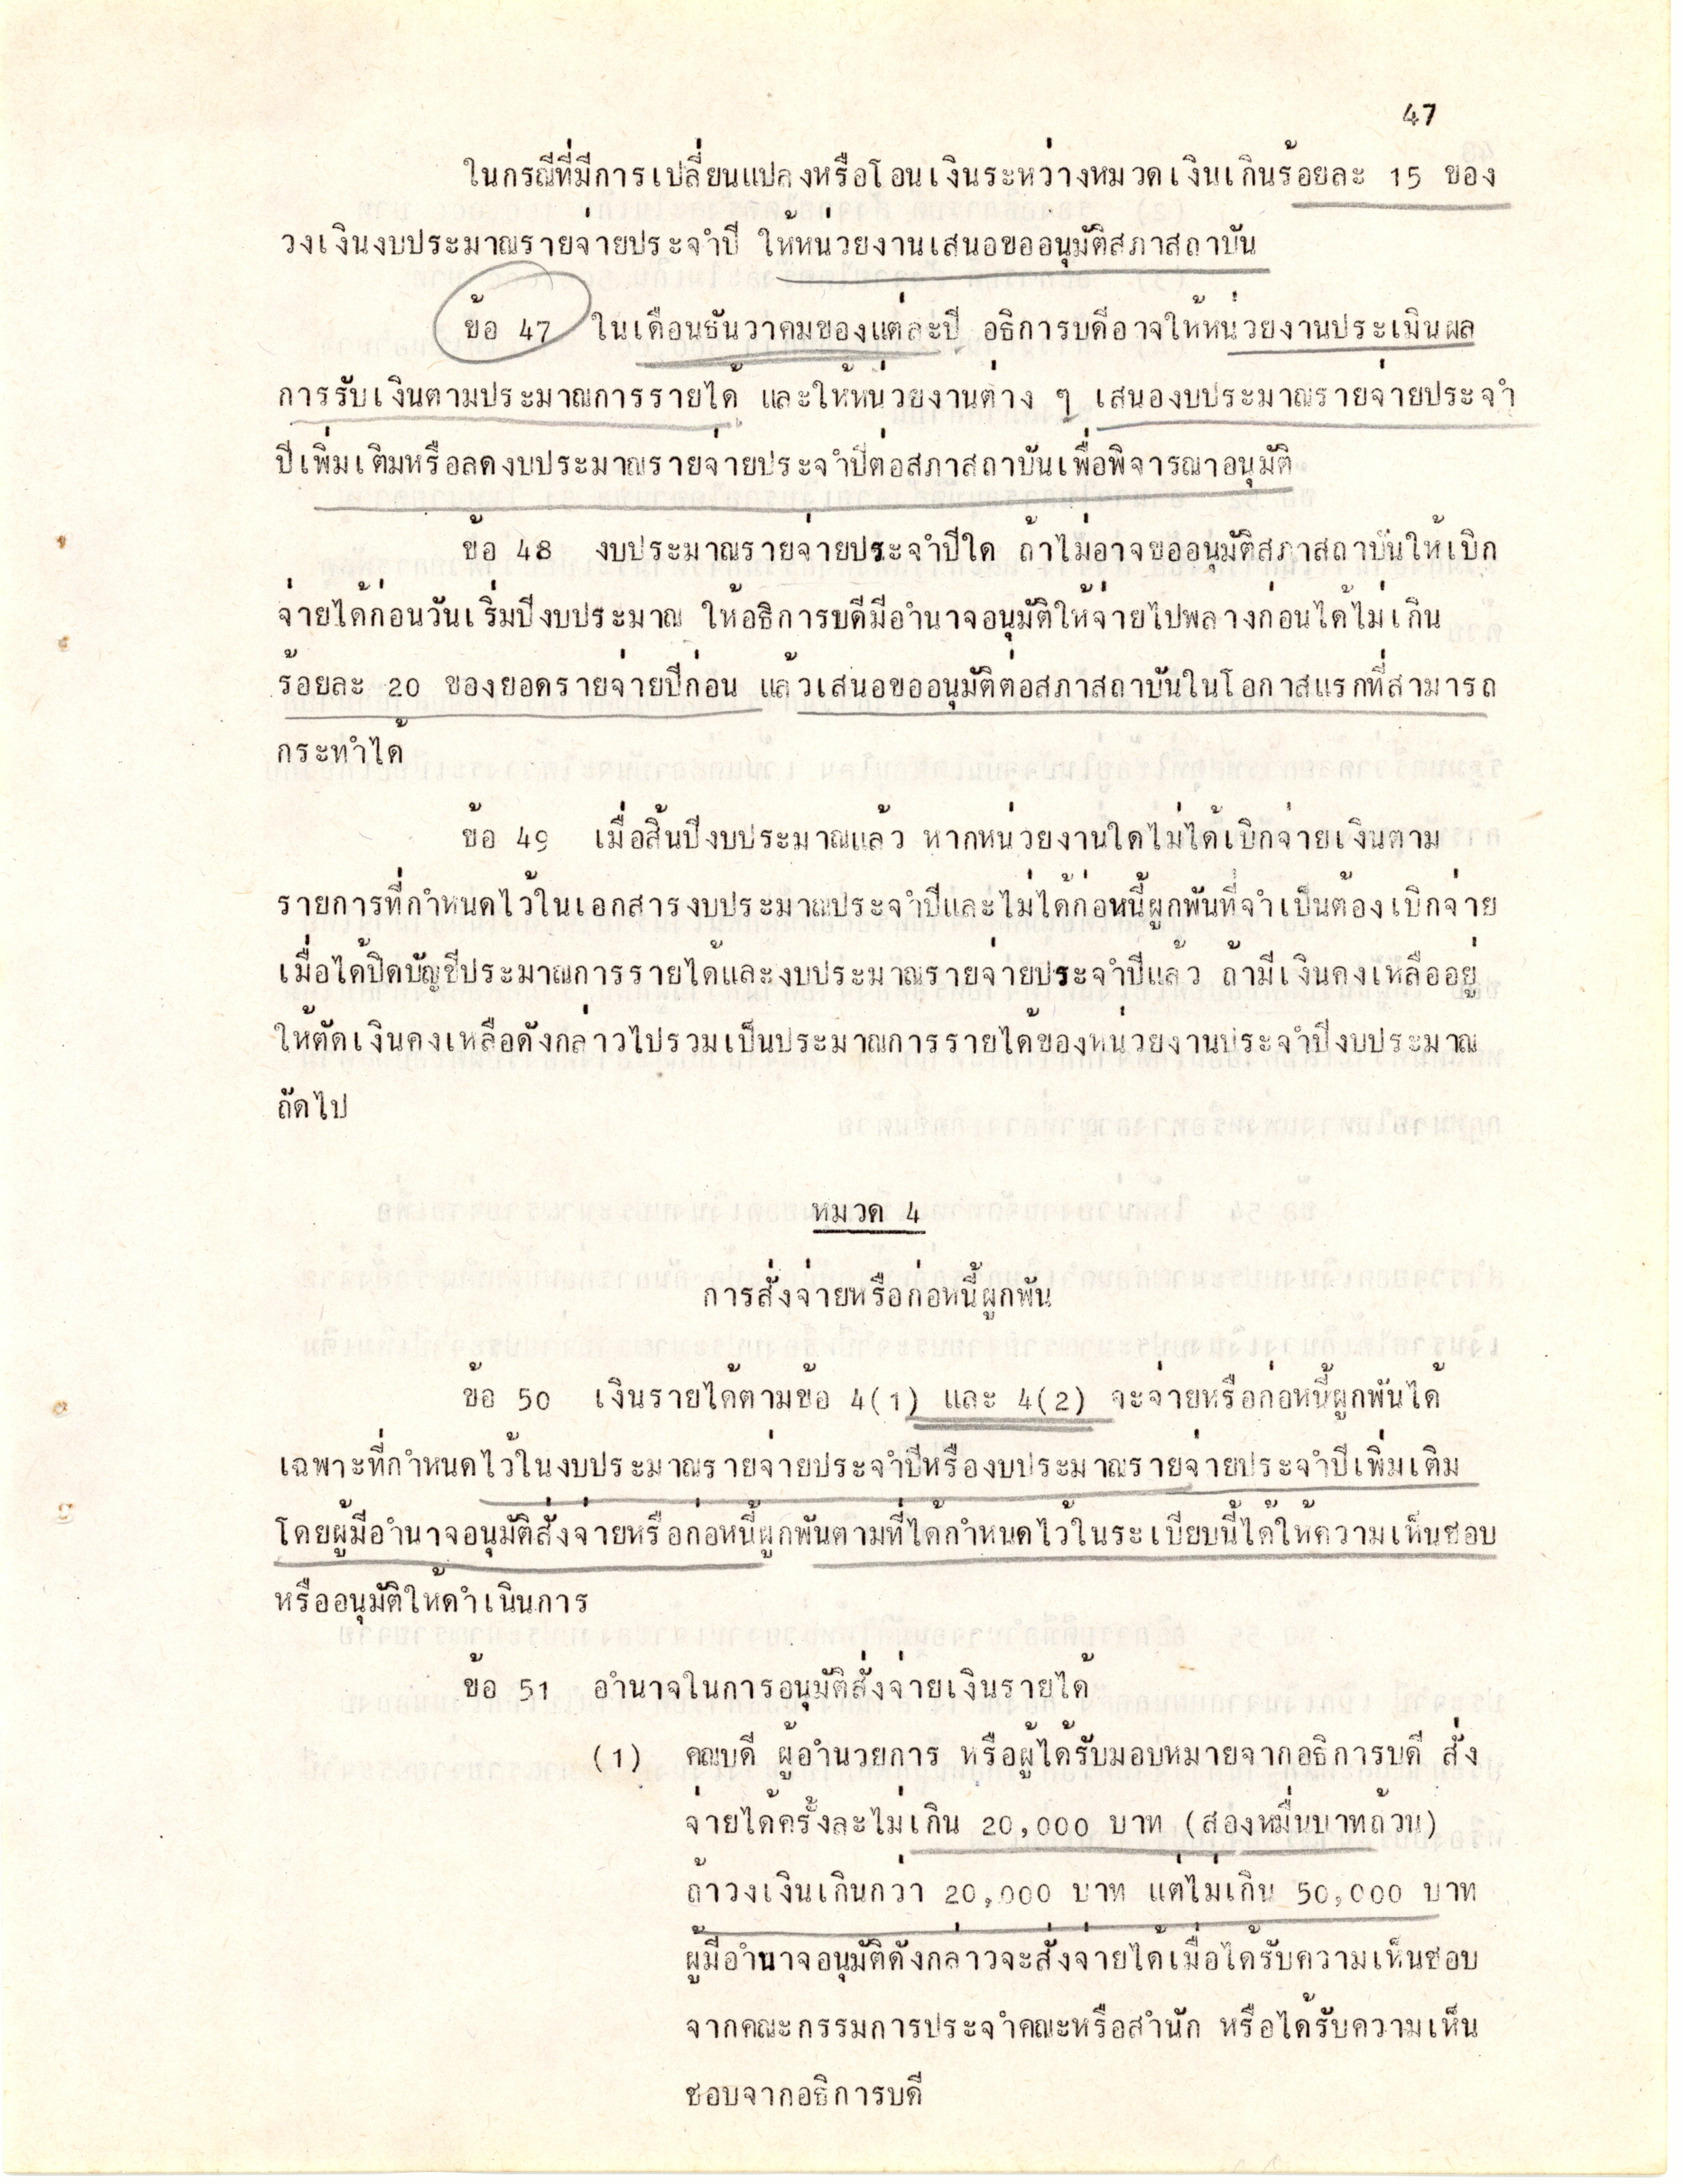 47
ในกรณีที่มีการเปลี่ยนแปลงหรือโอนเงินระหว่างหมวดเงินเกินร้อยละ 15 ของ
วงเงินงบประมาณรายจ่ายประจำปี ให้หน่วยงานเสนอขออนุมัติสภาสถาบัน
ข้อ 47 ในเดือนธันวาคมของแต่ละปี อธิการบดีอาจให้หน่วยงานประเมินผล
การรับเงินตามประมาณการรายได้ และให้หน่วยงานต่าง ๆ เสนองบประมาณรายจ่ายประจำ
ปีเพิ่มเติมหรือลดงบประมาณรายจ่ายประจำปีต่อสภาสถาบันเพื่อพิจารณาอนุมัติ
ข้อ 48 งบประมาณรายจ่ายประจำปีใด ถ้าไม่อาจขออนุมัติสภาสถาบันให้เบิก
จ่ายได้ก่อนวันเริ่มปีงบประมาณ ให้อธิการบดีมีอำนาจอนุมัติให้จ่ายไปพลางก่อนได้ไม่เกิน
ร้อยละ 20 ของยอดรายจ่ายปีก่อน แล้วเสนอขออนุมัติต่อสภาสถาบันในโอกาสแรกที่สามารถ
กระทำได้
ข้อ 49 เมื่อสิ้นปีงบประมาณแล้ว หากหน่วยงานใดไม่ได้เบิกจ่ายเงินตาม
รายการที่กำหนดไว้ในเอกสารงบประมาณประจำปีและไม่ได้ก่อหนี้ผูกพันที่จำเป็นต้องเบิกจ่าย
เมื่อได้ปิดบัญชีประมาณการรายได้และงบประมาณรายจ่ายประจำปีแล้ว ถ้ามีเงินคงเหลืออยู่
ให้ตัดเงินคงเหลือดังกล่าวไปรวมเป็นประมาณการรายได้ของหน่วยงานประจำปีงบประมาณ
ถัดไป
หมวด 4
การสั่งจ่ายหรือก่อหนี้ผูกพัน
ข้อ 50 เงินรายได้ตามข้อ 4(1) และ 4(2) จะจ่ายหรือก่อหนี้ผูกพันได้
เฉพาะที่กำหนดไว้ในงบประมาณรายจ่ายประจำปีหรืองบประมาณรายจ่ายประจำปีเพิ่มเติม
โดยผู้มีอำนาจอนุมัติสั่งจ่ายหรือก่อหนี้ผูกพันตามที่ได้กำหนดไว้ในระเบียบนี้ได้ให้ความเห็นชอบ
หรืออนุมัติให้ดำเนินการ
ข้อ 51 อำนาจในการอนุมัติสั่งจ่ายเงินรายได้
(1) คณบดี ผู้อำนวยการ หรือผู้ได้รับมอบหมายจากอธิการบดี สั่ง
จ่ายได้ครั้งละไม่เกิน 20,000 บาท (สองหมื่นบาทถ้วน)
ถ้าวงเงินเกินกว่า 20,000 บาท แต่ไม่เกิน 50,000 บาท
ผู้มีอำนาจอนุมัติดังกล่าวจะสั่งจ่ายได้เมื่อได้รับความเห็นชอบ
จากคณะกรรมการประจำคณะหรือสำนัก หรือได้รับความเห็น
ชอบจากอธิการบดี